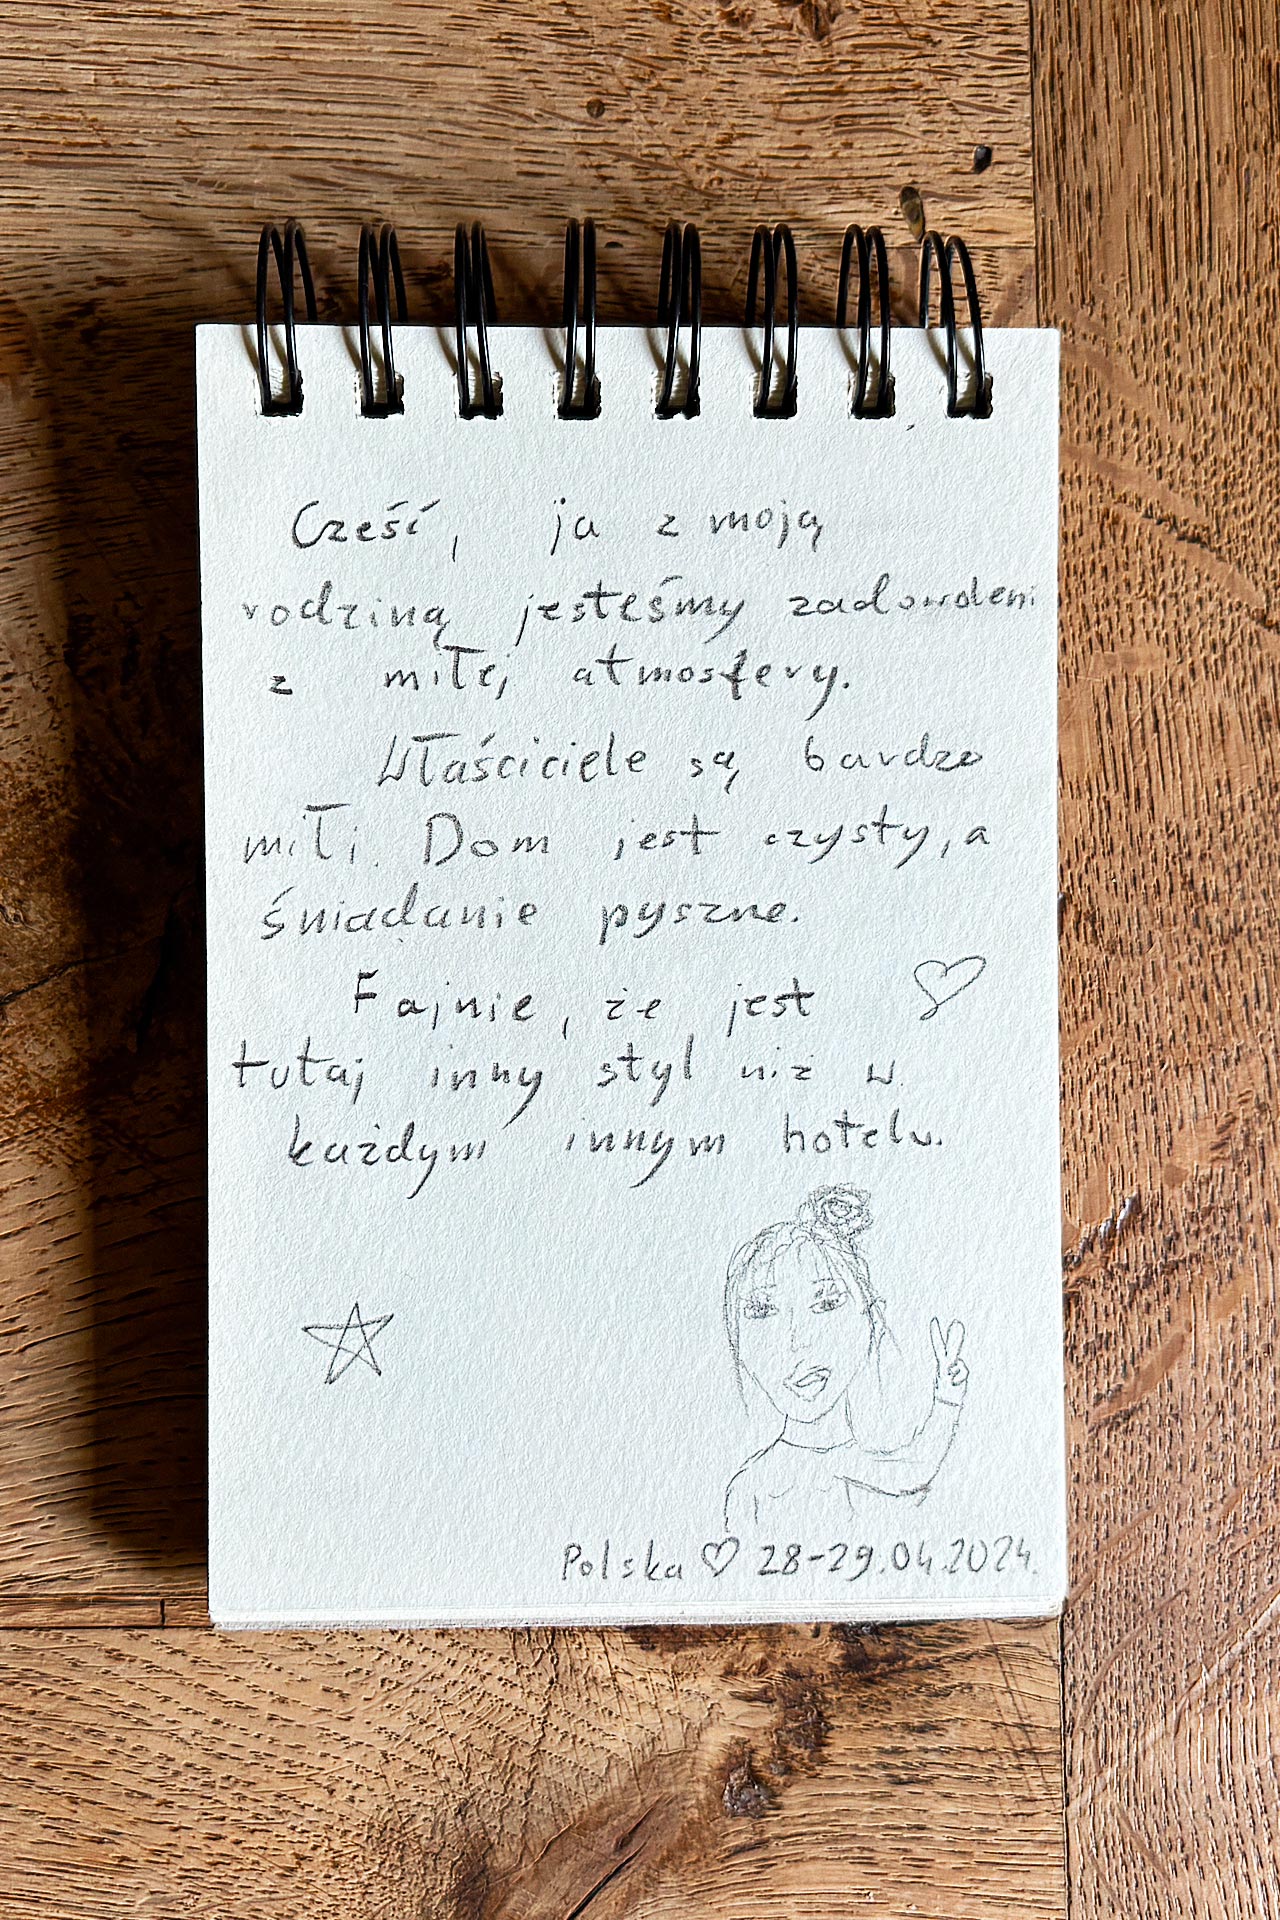 Cześć, ja z moją
rodziną jesteśmy zadowoleni
z miłej atmosfery.
Właściciele są bardzo
mili. Dom jest czysty, a
śniadanie pyszne.
Fajnie, że jest
tutaj inny styl niż w
każdym innym hotelu.
Polska ♡ 28-29.04.2024.